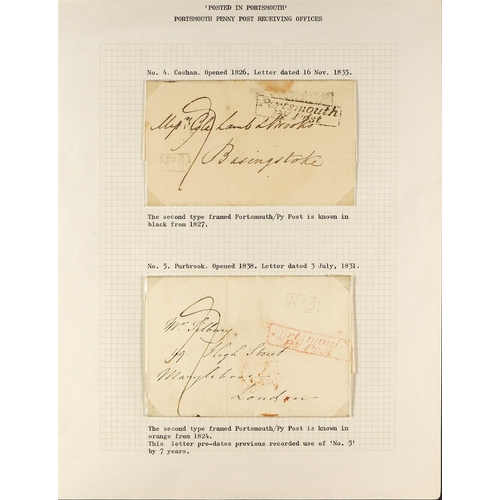 'POSTED IN PORTSMOUTH'
PORTSMOUTH PENNY POST RECEIVING OFFICES
No. 4. Cosham. Opened 1826. Letter dated 16 Nov. 1835.
Portsmouth
Py Post
Cole Lamb & Brooks
Basingstoke
The second type framed Portsmouth/Py Post is known in
black from 1827.
No. 5. Purbrook. Opened 1838. Letter dated 3 July, 1831.
No 5
Mr. Tilbury
Portsmouth
Py Post
49 High Street
Marylebone
London
The second type framed Portsmouth/Py Post is known in
orange from 1824.
This letter pre-dates previous recorded use of 'No. 5'
by 7 years.